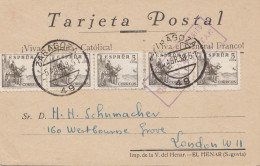 Tarjeta Postal
¡Viva España Católica! ¡Viva el General Franco!
ESPAÑA 5 ESPAÑA 5 ESPAÑA 5 ESPAÑA 5 ESPAÑA 5
ZARAGOZA
49
Sr. D. H. H. Schumacher
160 Westbourne Grove
London W 11
Imp. de la V.J. del Henar.—EL HENAR (Segovia)